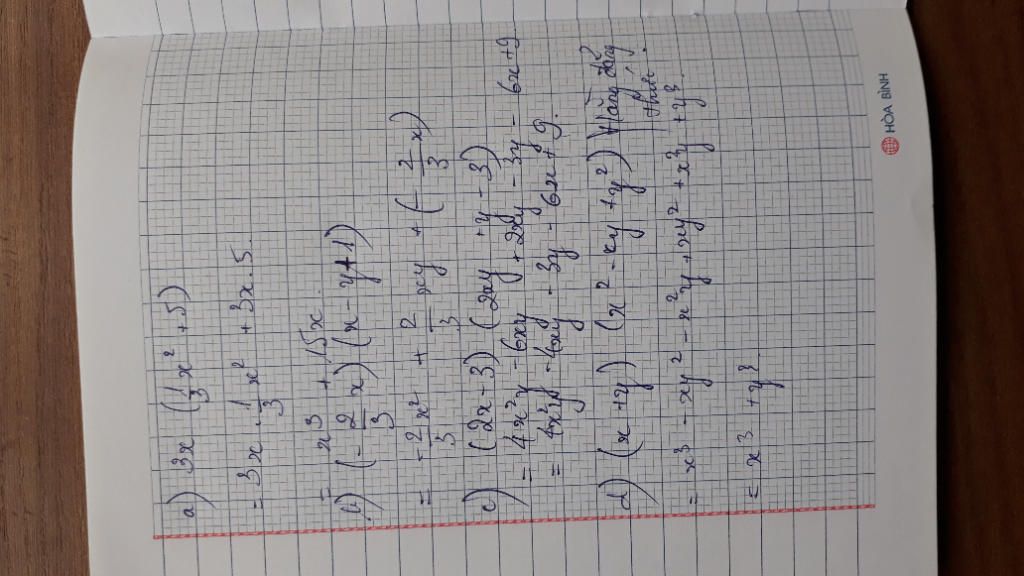 a) 3x (1/3 x² + 5)
= 3x . 1/3 x² + 3x . 5.
= x³ + 15x.
b) (- 2/3 x) (x - y + 1)
= - 2/3 x² + 2/3 xy + (- 2/3 x)
c) (2x - 3) (2xy + y - 3)
= 4x²y - 6xy + 2xy - 3y - 6x + 9
= 4x²y - 4xy - 3y - 6x + 9.
d) (x + y) (x² - xy + y²) Hằng đẳng
thức
= x³ - xy² - x²y + xy² + x²y + y³.
= x³ + y³.
HÒA BÌNH